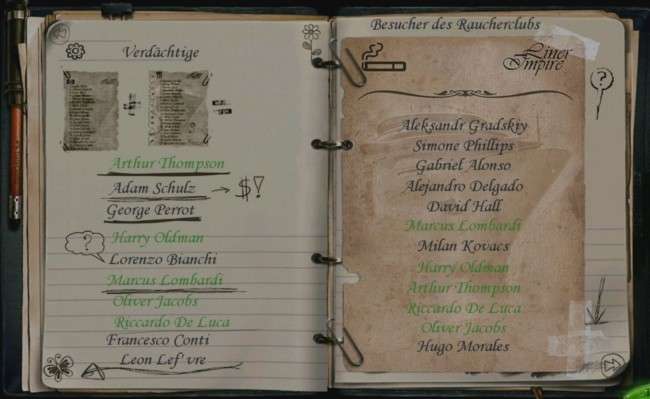 Verdächtige
Arthur Thompson
Adam Schulz
$!
George Perrot
Harry Oldman
?
Lorenzo Bianchi
Marcus Lombardi
Oliver Jacobs
Riccardo De Luca
Francesco Conti
Leon Lef vre
Besucher des Raucherclubs
Liner
Empire
?
Aleksandr Gradskiy
Simone Phillips
Gabriel Alonso
Alejandro Delgado
David Hall
Marcus Lombardi
Milan Kovacs
Harry Oldman
Arthur Thompson
Riccardo De Luca
Oliver Jacobs
Hugo Morales